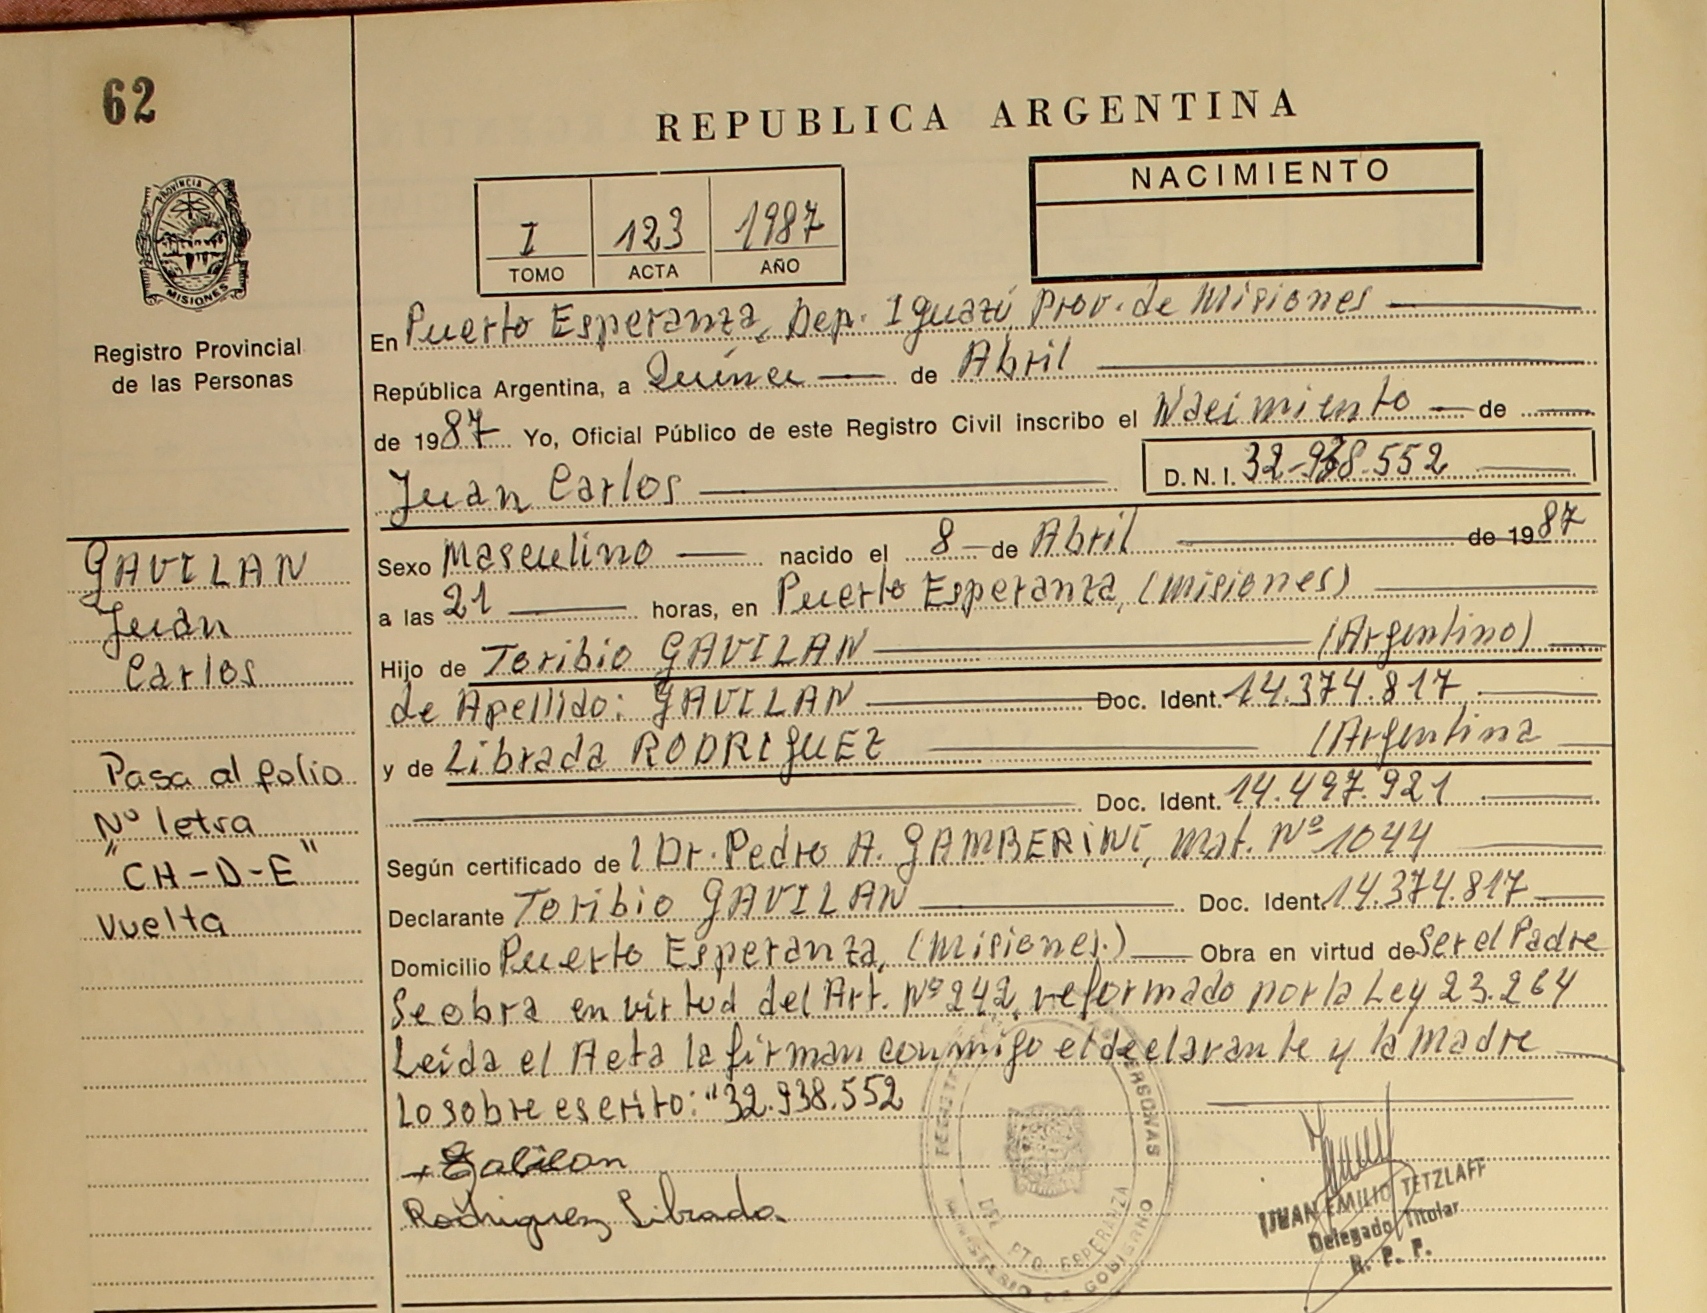 62
REPUBLICA ARGENTINA
NACIMIENTO
I 123 1987
TOMO ACTA AÑO
PROVINCIA DE
MISIONES
Registro Provincial
de las Personas
En Puerto Esperanza, Dep. Iguazú Prov. de Misiones
República Argentina, a Quince de Abril
de 1987 Yo, Oficial Público de este Registro Civil inscribo el Nacimiento de
Juan Carlos D.N.I. 32.938.552
GAVILAN
Juan
Carlos
Pasa al folio
Nº letra
"CH-D-E"
Vuelta
Sexo Masculino nacido el 8 de Abril de 1987
a las 21 horas, en Puerto Esperanza, (Misiones)
Hijo de Toribio GAVILAN (Argentino)
de Apellido: GAVILAN Doc. Ident. 14.374.817
y de Librada RODRIGUEZ (Argentina
Doc. Ident. 14.497.921
Según certificado de l Dr. Pedro A. GAMBERINI, Mat. Nº 1044
Declarante Toribio GAVILAN Doc. Ident. 14.374.817
Domicilio Puerto Esperanza, (Misiones.) Obra en virtud de Ser el Padre
Se obra en virtud del Art. Nº 242, reformado por la Ley 23.264
Leída el Acta la firman conmigo el declarante y la Madre
Lo sobre escrito: "32.938.552
Rodriguez Librada
PERSONAS
DEL PTO. ESPERANZA
JUAN EMILIO TETZLAFF
Delegado Titular
R. P. P.